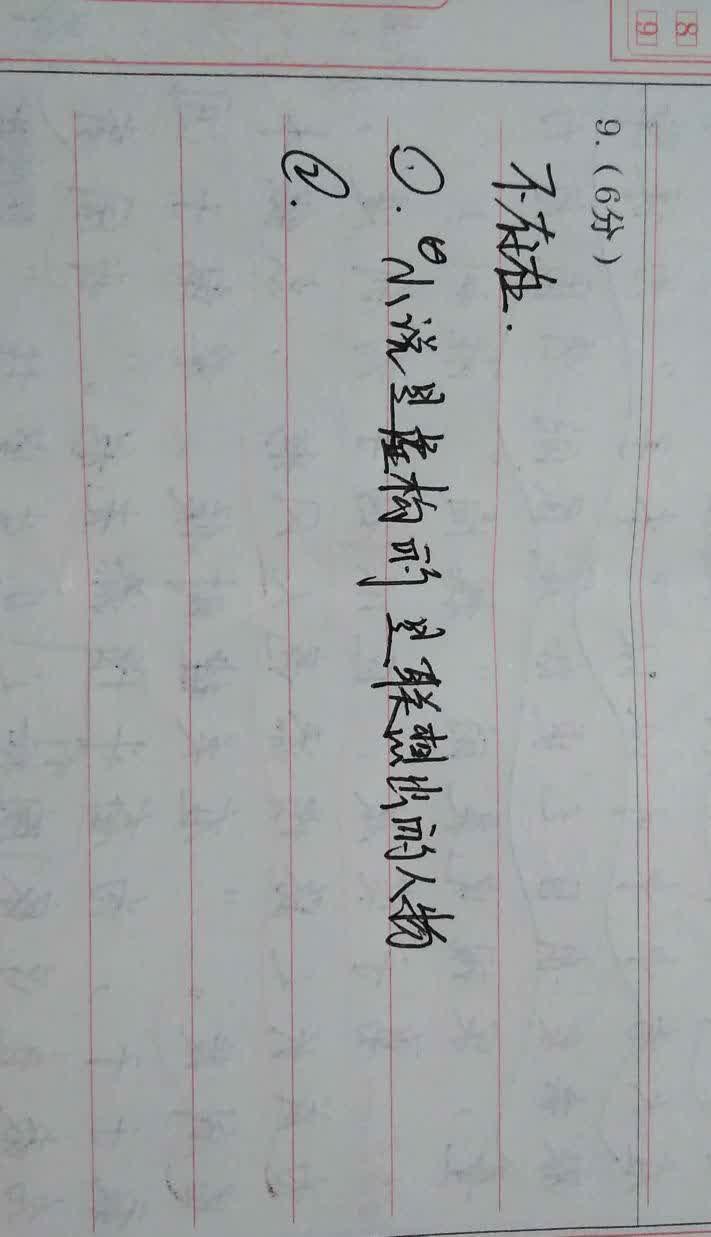 8
9
9.(6分)
不存在.
①.小说是虚构的是联想出的人物
②.